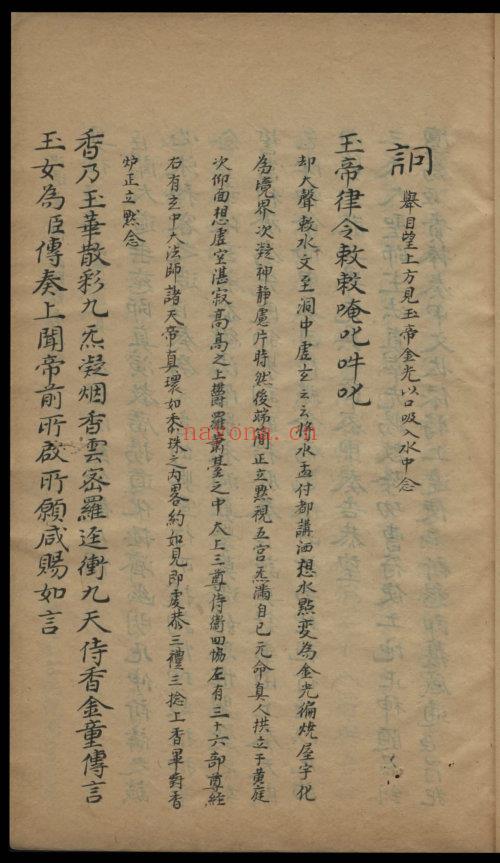 詗 舉目望上方見玉帝金光以口吸入水中念
玉帝律令敕敕唵叱吽叱
却大聲敕水文至洞中虛玄云云將水盂付都講洒想水點変為金光徧燒屋宇化
為境界次凝神靜慮片時然後端簡正立黙視五宮炁滿自己元命真人拱立于黄庭
次仰面想虛空湛寂高高之上欎羅蕭臺之中太上三尊侍衛四協左有三十六部尊經
右有玄中大法師諸天帝真環如黍珠之内畧約如見即虔恭三禮三捻上香畢對香
炉正立黙念
香乃玉華散彩九炁凝烟香雲宻羅逕衝九天侍香金童傳言
玉女為臣傳奏上聞帝前所啟所願咸賜如言
nayona.cn